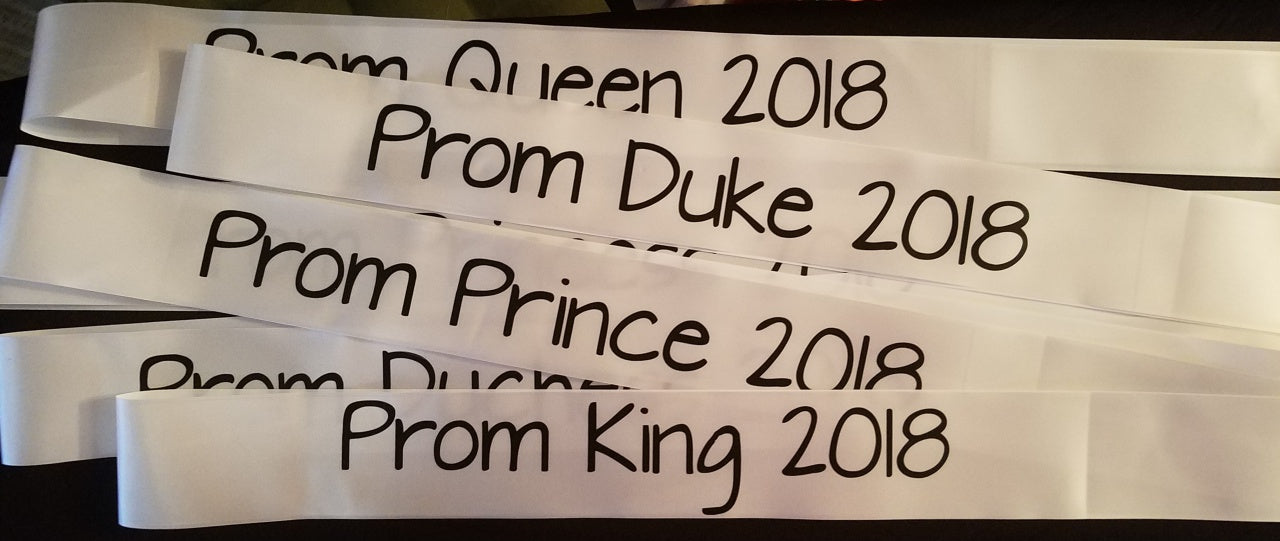 Prom Queen 2018
Prom Duke 2018
Prom Prince 2018
Prom
Prom King 2018